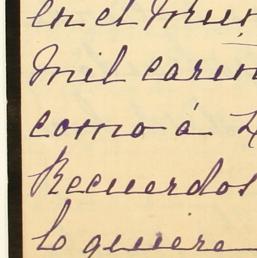 en el mun
Mil cariñ
como á
Recuerdos
lo quiere